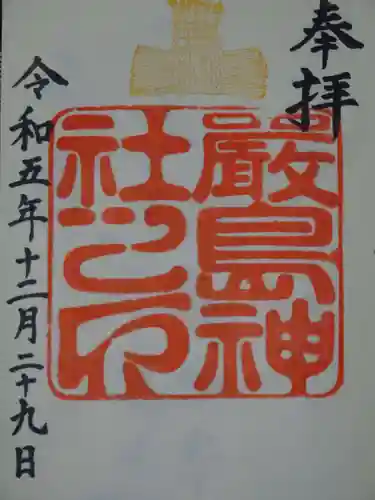 奉拝
嚴島神
社之印
令和五年十二月二十九日